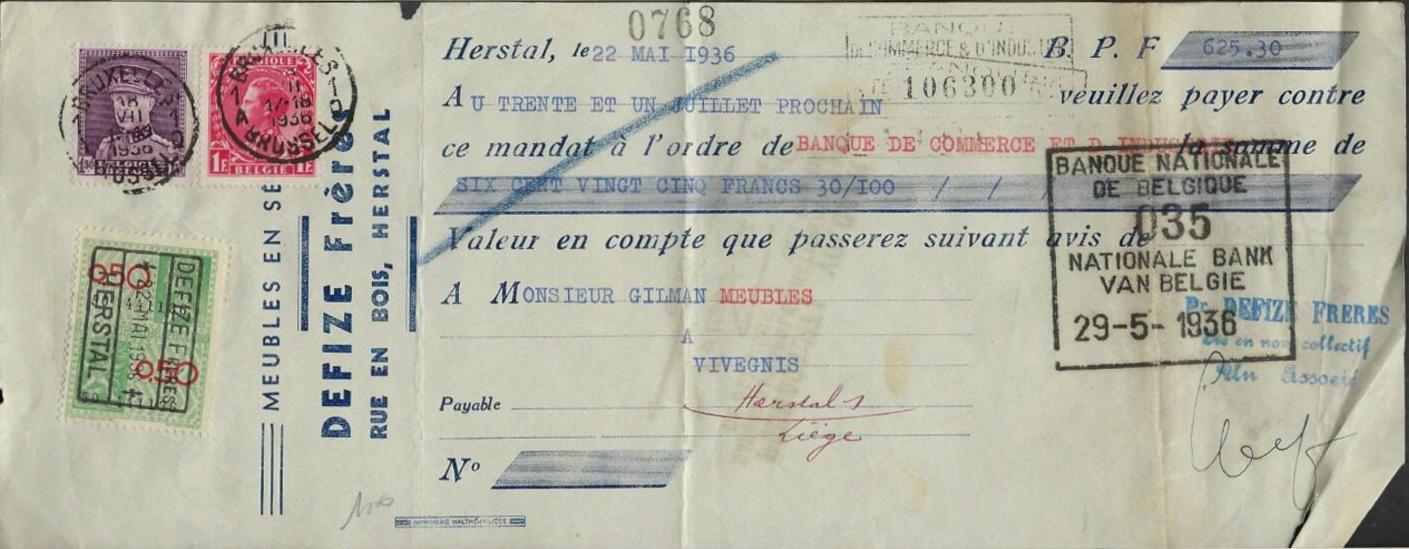 0768
Herstal, le 22 MAI 1936
BANQUE
DE COMMERCE & D'INDUSTRIE
106300
B. P. F 625.30
AU TRENTE ET UN JUILLET PROCHAIN veuillez payer contre
ce mandat à l'ordre de BANQUE DE COMMERCE ET D INDUSTRIE la somme de
SIX CENT VINGT CINQ FRANCS 30/100 / / /
Valeur en compte que passerez suivant avis de
A MONSIEUR GILMAN MEUBLES
A
VIVEGNIS
Payable Herstal
Liège
N°
IMPRIMERIE WALTHÉRY-LIÈGE
BANQUE NATIONALE
DE BELGIQUE
035
NATIONALE BANK
VAN BELGIE
29-5-1936
Pr. DEFIZE FRERES
en nom collectif
Un Associé
MEUBLES EN
DEFIZE Frères
RUE EN BOIS, HERSTAL
BRUXELLES 1
18
VII
1936
BRUSSEL
BELGIE
BRUXELLES 1
17-18
1936
A BRUSSEL
BELGIQUE
1F BELGIE 1F
0.50
0.50
DEFIZE FRERES
22 MAI 1936
HERSTAL
100